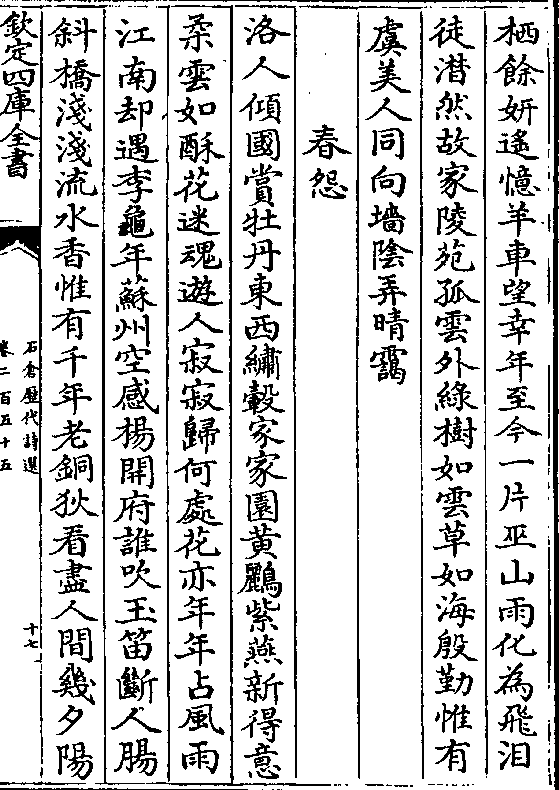 栖餘妍遙憶羊車望幸年至今一片巫山雨化為飛泪
徒潸然故家陵苑孤雲外綠樹如雲草如海殷勤惟有
虞美人同向墻陰弄晴靄
春怨
洛人傾國賞牡丹東西繡轂家家園黄鸝紫燕新得意
柔雲如酥花迷魂遊人寂寂歸何處花亦年年占風雨
江南却遇李龜年蘇州空感楊開府誰吹玉笛斷人腸
斜橋淺淺流水香惟有千年老銅狄看盡人間幾夕陽
欽定四庫全書
石倉歷代詩選
卷二百五十五
十七